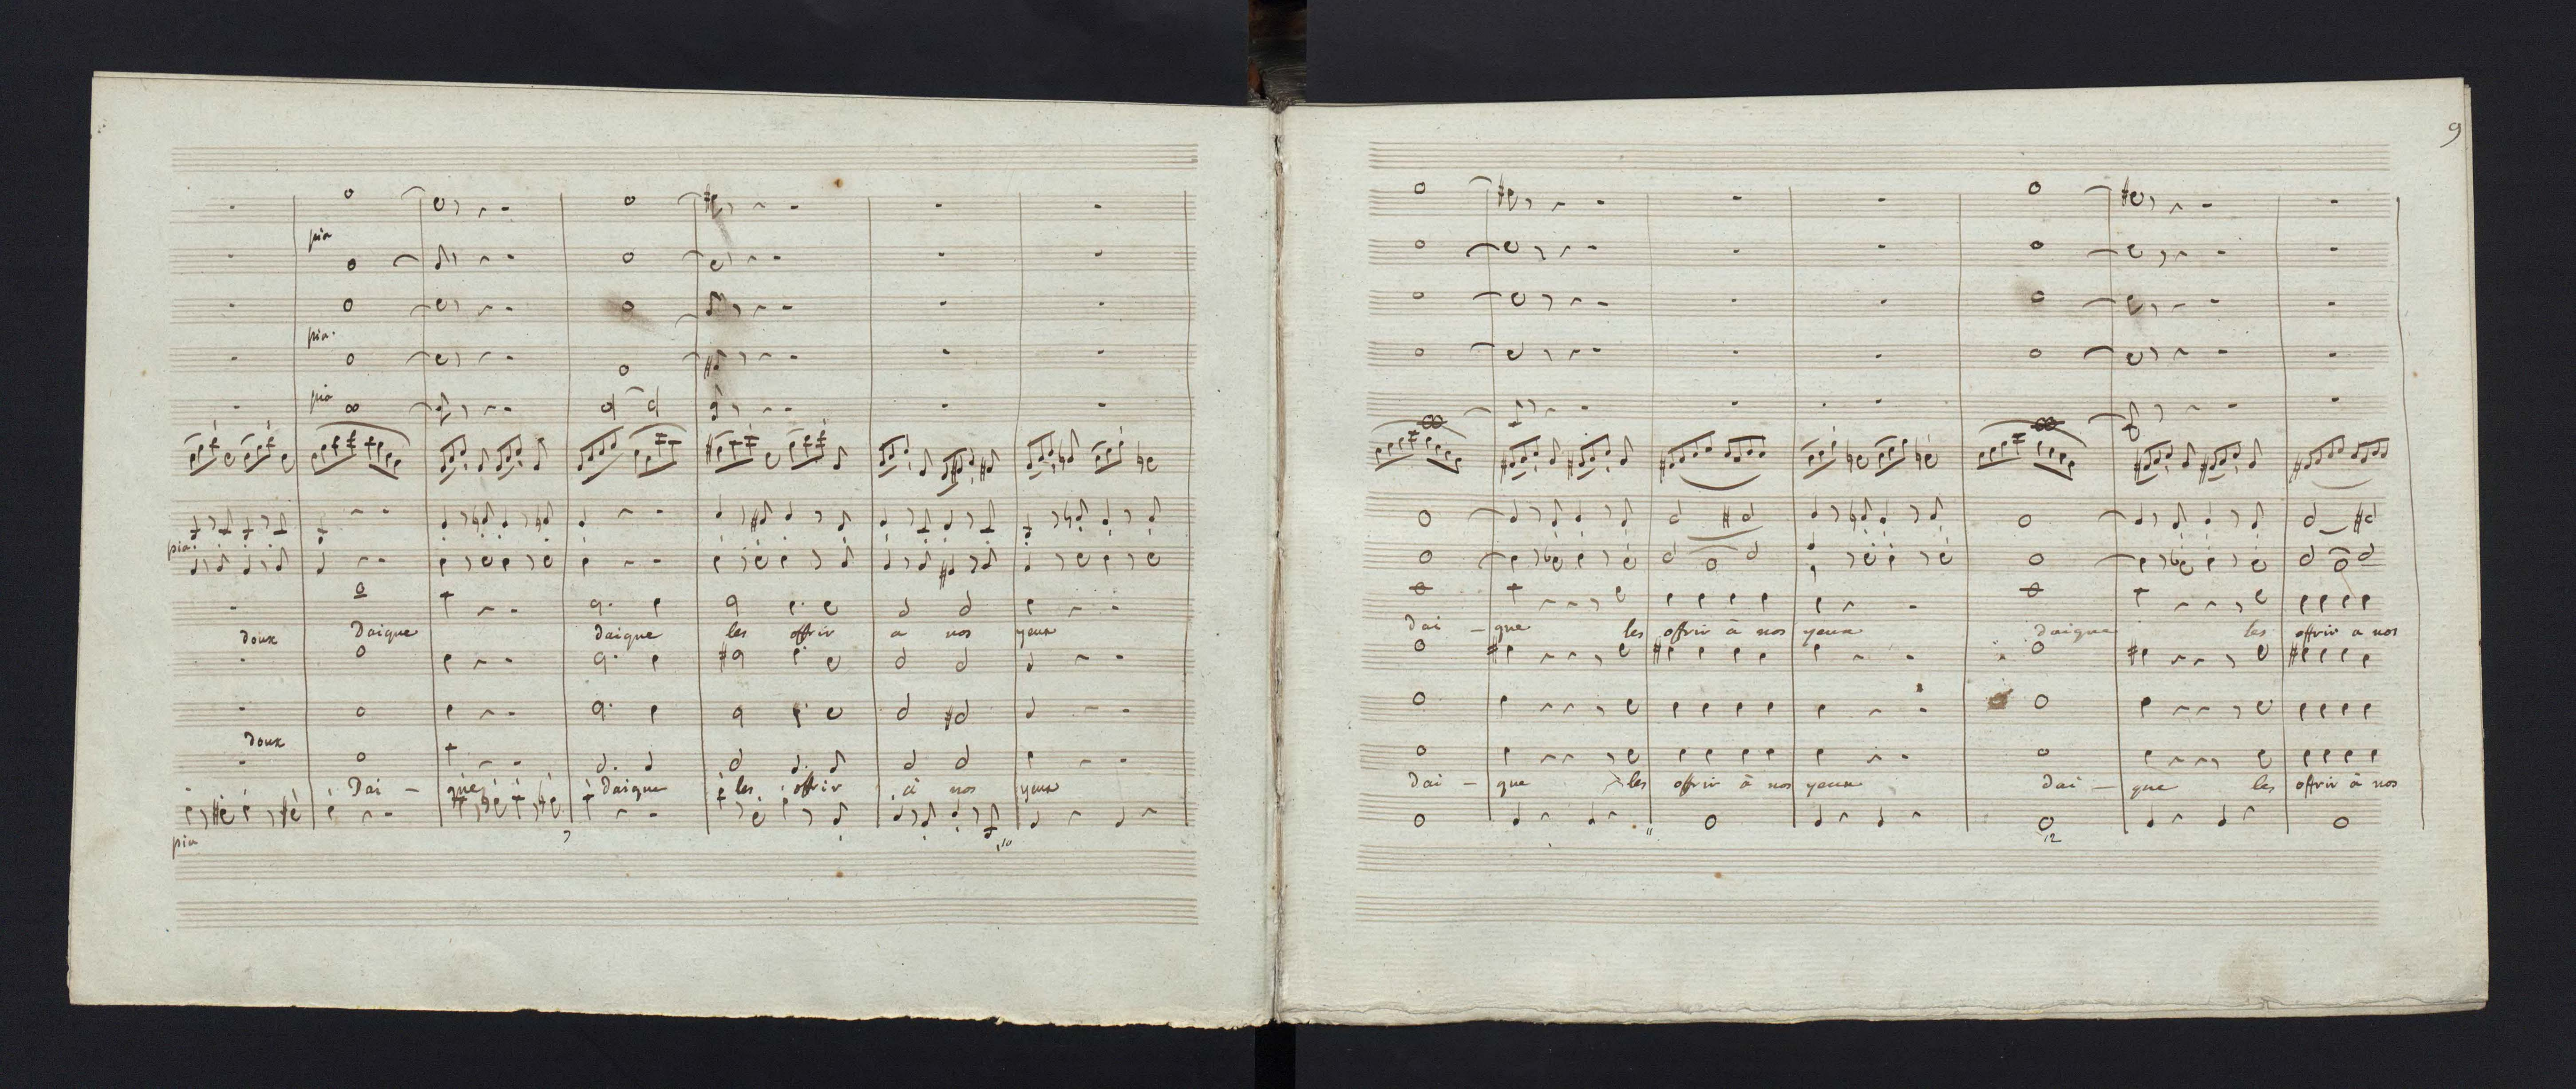 pia
pia.
pia
pia.
doux Daigue daigue les offrir a nos yeux
doux
Dai - que daigue les offrir à nos yeux
pia
7
10
9
dai - que les offrir à nos yeux daigue les offrir a nos
dai - que les offrir à nos yeux dai - que les offrir à nos
11
12